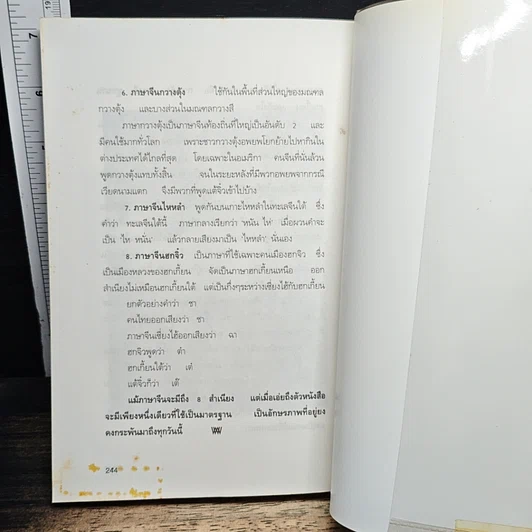 6. ภาษาจีนกวางตุ้ง ใช้กันในพื้นที่ส่วนใหญ่ของมณฑล
กวางตุ้ง และบางส่วนในมณฑลกวางสี
ภาษากวางตุ้งเป็นภาษาจีนท้องถิ่นที่ใหญ่เป็นอันดับ 2 และ
มีคนใช้มากทั่วโลก เพราะชาวกวางตุ้งอพยพโยกย้ายไปหากินใน
ต่างประเทศได้ไกลที่สุด โดยเฉพาะในอเมริกา คนจีนที่นั่นล้วน
พูดกวางตุ้งแทบทั้งสิ้น จนในระยะหลังที่มีพวกอพยพจากกรณี
เวียดนามแตก จึงมีพวกที่พูดแต้จิ๋วเข้าไปบ้าง
7. ภาษาจีนไหหลำ พูดกันบนเกาะไหหลำในทะเลจีนใต้ ซึ่ง
คำว่า ทะเลจีนใต้นี้ ภาษากลางเรียกว่า 'หนัน ไห่' เมื่อผวนคำจะ
เป็น 'ไห่ หนัน' แล้วกลายเสียงมาเป็น 'ไหหลำ' นั่นเอง
8. ภาษาจีนฮกจิ๋ว เป็นภาษาที่ใช้เฉพาะคนเมืองฮกจิ๋ว ซึ่ง
เป็นเมืองหลวงของฮกเกี้ยน จัดเป็นภาษาฮกเกี้ยนเหนือ ออก
สำเนียงไม่เหมือนฮกเกี้ยนใต้ แต่เป็นกึ่งๆระหว่างเซี่ยงไฮ้กับฮกเกี้ยน
ยกตัวอย่างคำว่า ชา
คนไทยออกเสียงว่า ชา
ภาษาจีนเซี่ยงไฮ้ออกเสียงว่า ฉา
ฮกจิ๋วพูดว่า ต๋า
ฮกเกี้ยนใต้ว่า เต๋
แต้จิ๋วก็ว่า เต๊
แม้ภาษาจีนจะมีถึง 8 สำเนียง แต่เมื่อเอ่ยถึงตัวหนังสือ
จะมีเพียงหนึ่งเดียวที่ใช้เป็นมาตรฐาน เป็นอักษรภาพที่อยู่ยง
คงกระพันมาถึงทุกวันนี้
244
7
6